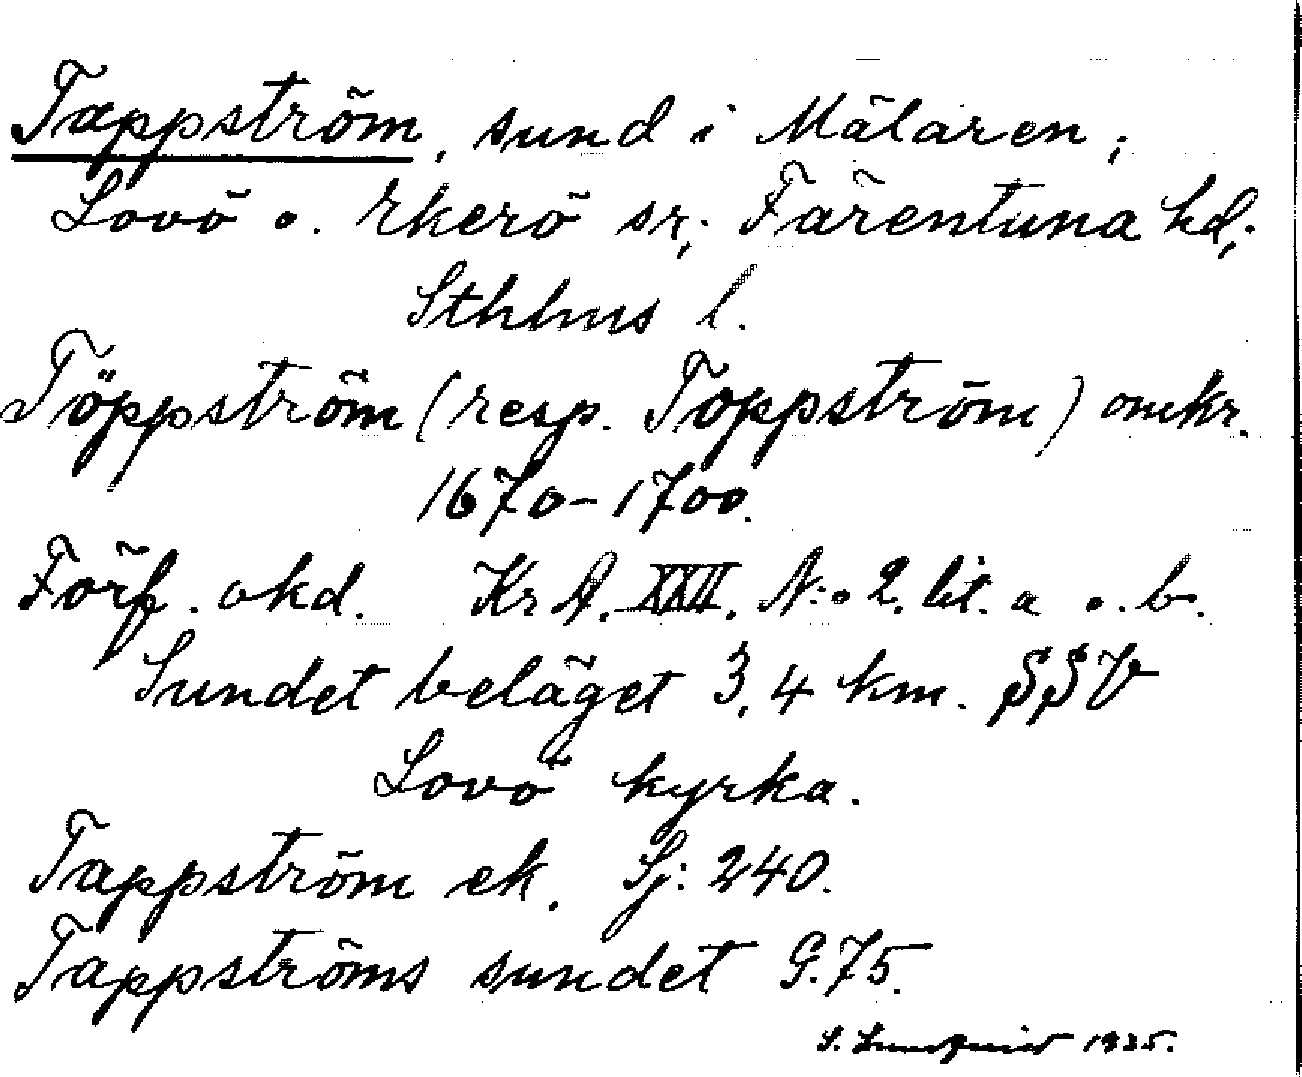 Tappström, sund i Mälaren;
Lovö o. Ekerö sr; Färentuna hd;
Sthlms l.
Töppström (resp. Toppström) omkr.
1670-1700.
Förf. okd. KrA. XXII. N:o 2. lit. a o. b.
Sundet beläget 3,4 km. SSV
Lovö kyrka.
Tappström ek. Sj: 240.
Tappströms sundet G.75.
S. 1935.